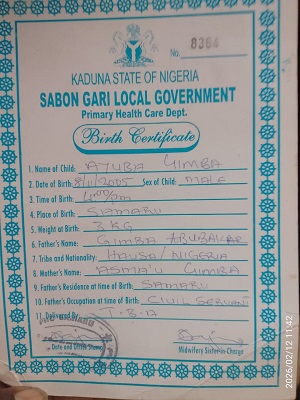 No. 8364
KADUNA STATE OF NIGERIA
SABON GARI LOCAL GOVERNMENT
Primary Health Care Dept.
Birth Certificate
1. Name of Child: AYUBA GIMBA
2. Date of Birth: 8/11/2005 Sex of Child: MALE
3. Time of Birth: 4:00pm
4. Place of Birth: SAMARU
5. Weight at Birth: 3 KG
6. Father's Name: GIMBA ABUBAKAR
7. Tribe and Nationality: HAUSA/NIGERIA
8. Mother's Name: ASMA'U GIMBA
9. Father's Residence at time of Birth: SAMARU
10. Father's Occupation at time of Birth: CIVIL SERVANT
11. Delivered By: T.B.A
Date and Office Stamp
Midwifery Sister-in-Charge
2026/02/12 11:42